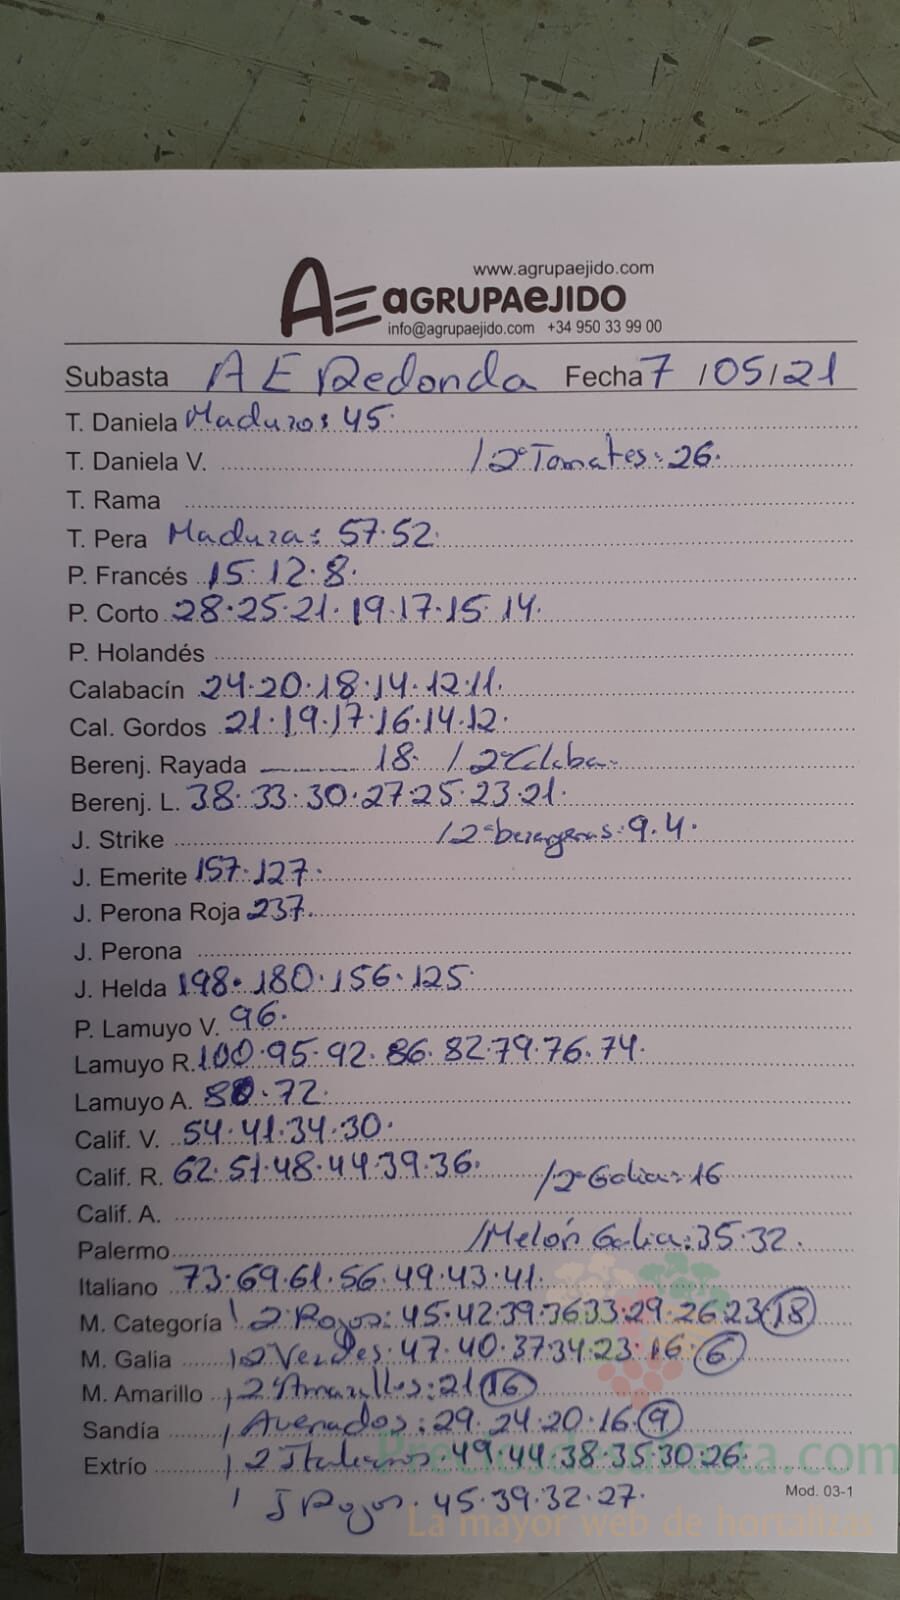 www.agrupaejido.com
AE aGRUPAeJIDO
info@agrupaejido.com +34 950 33 99 00
Subasta AE Redonda Fecha 7 /05/21
T. Daniela Maduros: 45.
T. Daniela V. /2ª Tomates: 26.
T. Rama
T. Pera Madura: 57.52.
P. Francés 15.12.8.
P. Corto 28.25.21.19.17.15.14.
P. Holandés
Calabacín 24.20.18.14.12.11.
Cal. Gordos 21.19.17.16.14.12.
Berenj. Rayada 18. /2ª
Berenj. L. 38.33.30.27.25.23.21.
J. Strike /2ª berengenas: 9.4.
J. Emerite 157.127.
J. Perona Roja 237.
J. Perona
J. Helda 198.180.156.125
P. Lamuyo V. 96.
Lamuyo R. 100.95.92.86.82.79.76.74.
Lamuyo A. 80.72.
Calif. V. 54.41.34.30.
Calif. R. 62.51.48.44.39.36. /2ª Galia: 16
Calif. A.
Palermo /Melón Galia: 35.32.
Italiano 73.69.61.56.49.43.41.
M. Categoría 2 Rojos: 45.42.39.36.33.29.26.23.18
M. Galia 2 Verdes. 47.40.37.34.23.16.6
M. Amarillo 2ª Amarillos: 21.16
Sandía Asurados: 29.24.20.16.9
Extrío 2 Italianos. 49.44.38.35.30.26.
J Rojos. 45.39.32.27.
Mod. 03-1
Preciosdesubasta.com
La mayor web de hortalizas